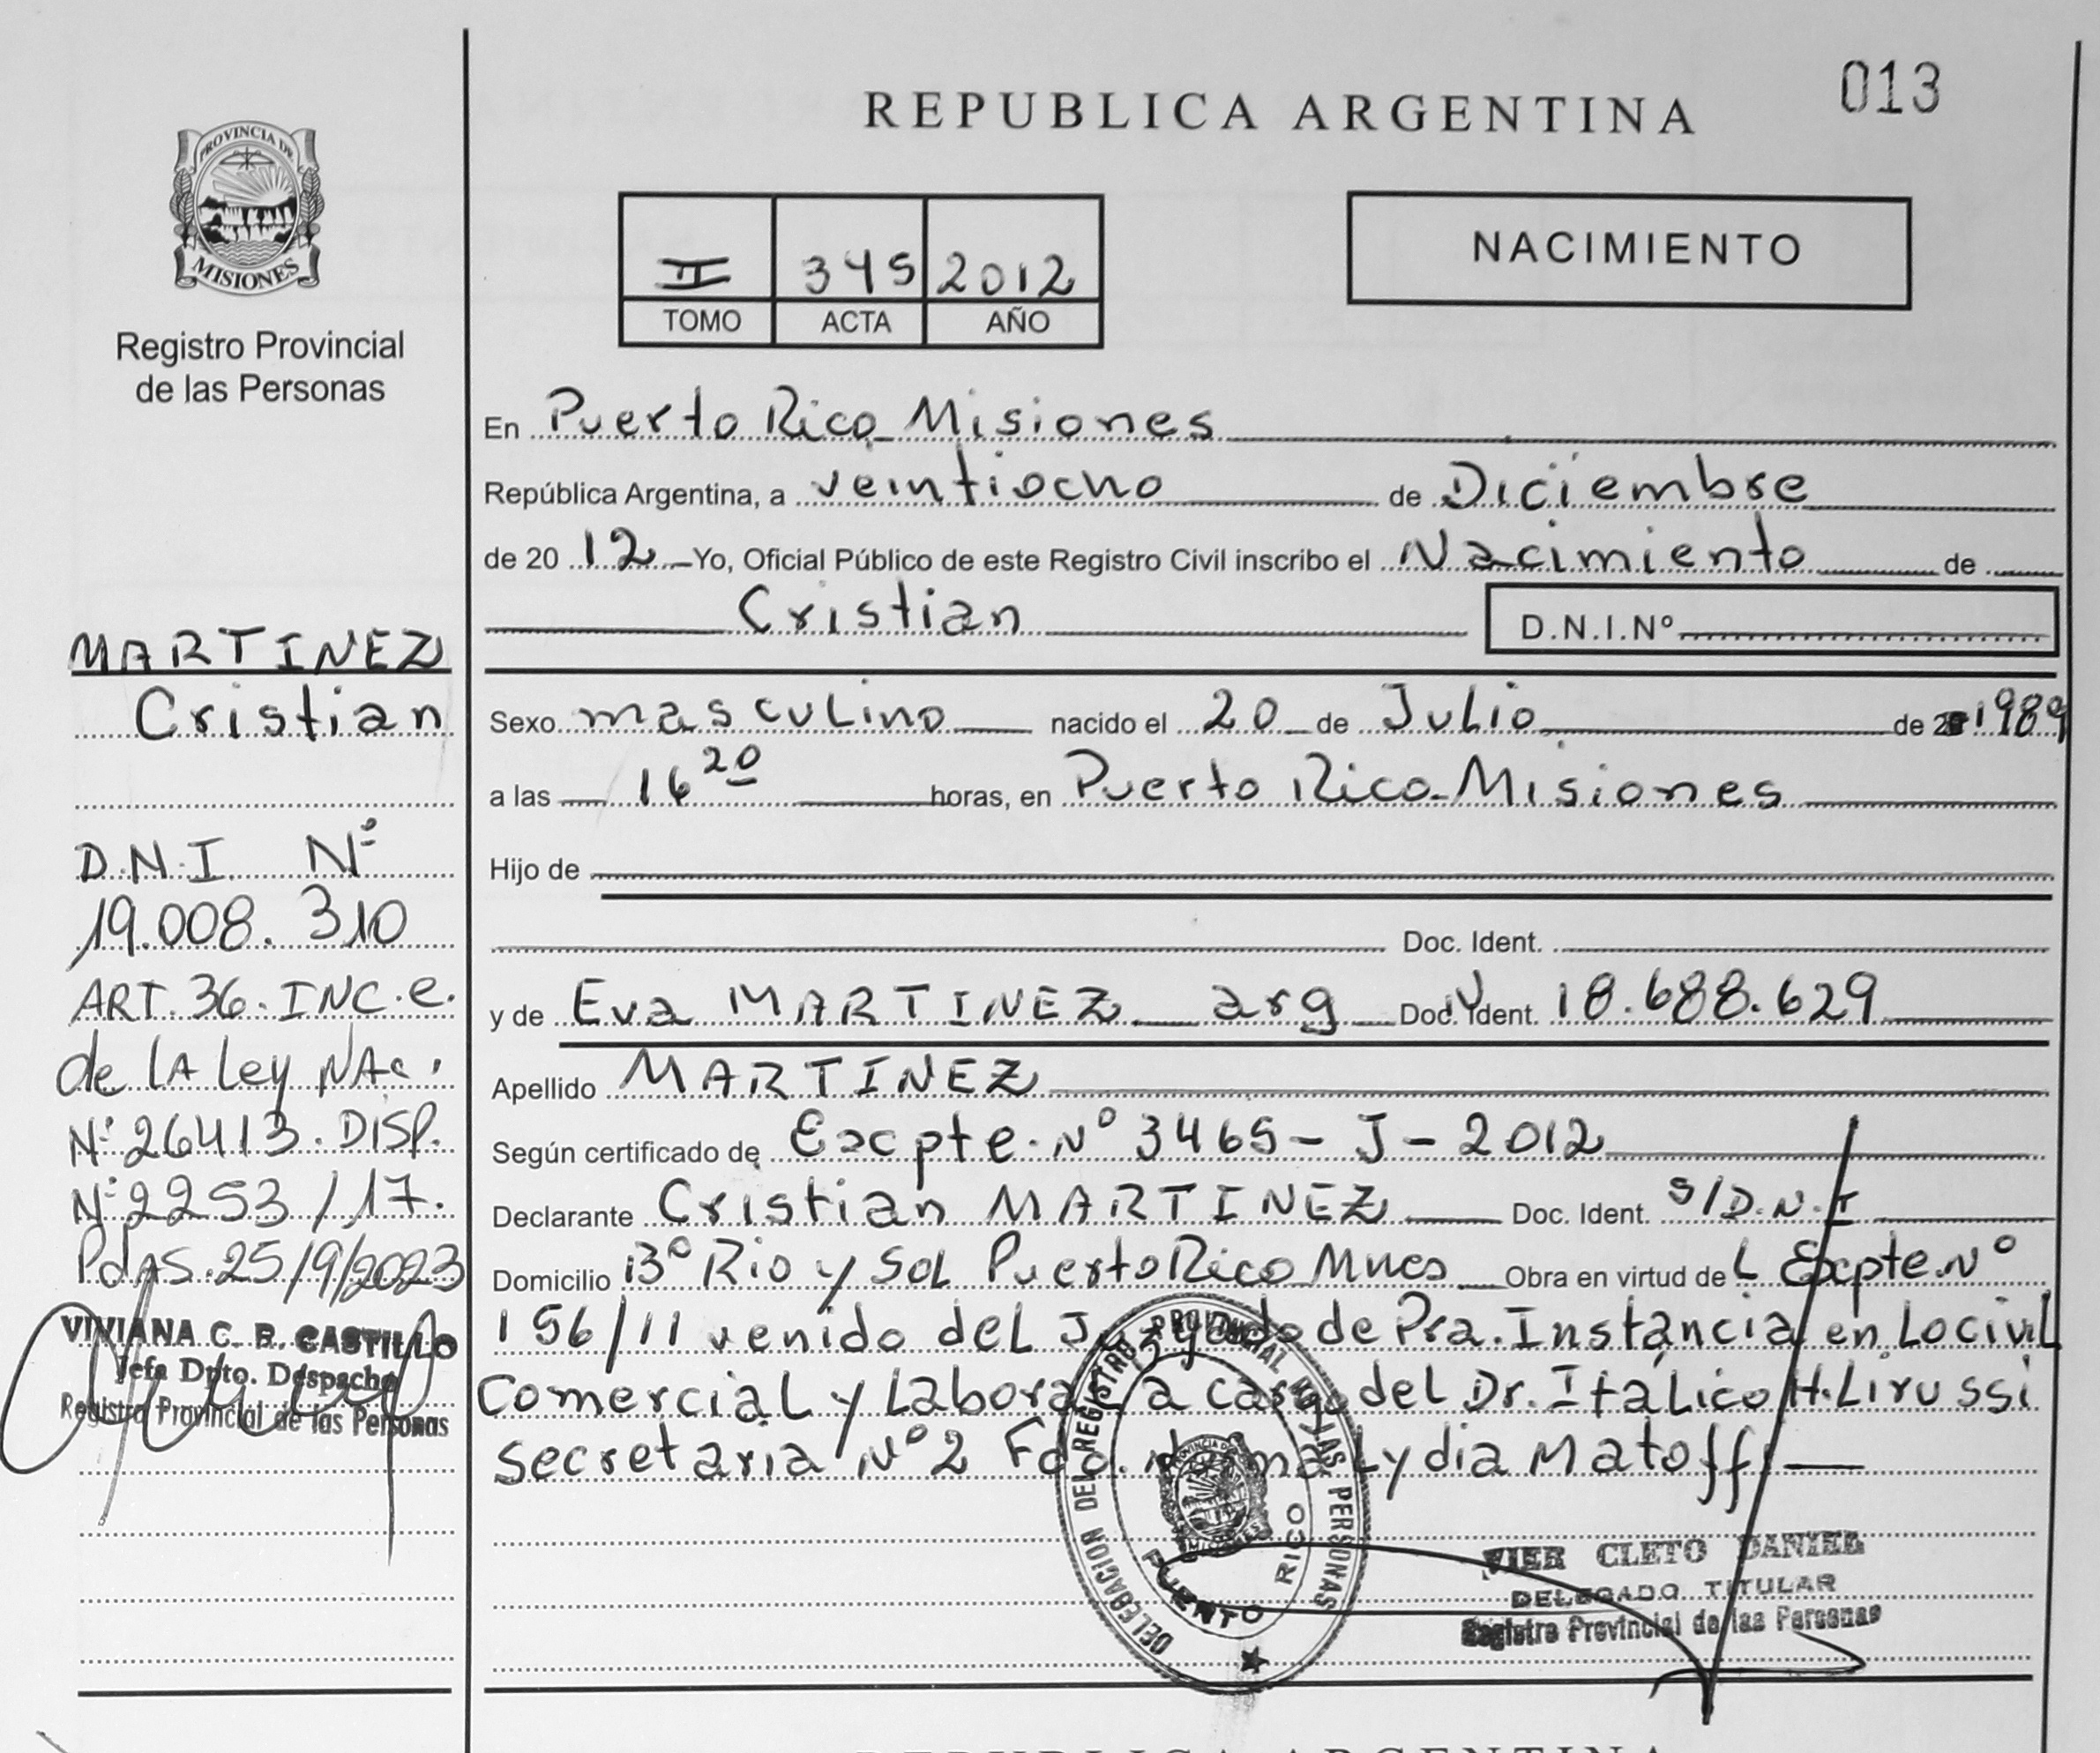 REPUBLICA ARGENTINA
013
PROVINCIA DE
MISIONES
Registro Provincial
de las Personas
II 345 2012
TOMO ACTA AÑO
NACIMIENTO
En Puerto Rico Misiones
República Argentina, a veintiocho de Diciembre
de 20 12 Yo, Oficial Público de este Registro Civil inscribo el Nacimiento de
Cristian
D.N.I.Nº
Sexo masculino nacido el 20 de Julio de 1989
a las 16 20 horas, en Puerto Rico-Misiones
Hijo de
Doc. Ident.
y de Eva MARTINEZ arg Doc. Ident. 18.688.629
Apellido MARTINEZ
Según certificado de Excpte. Nº 3465-J-2012
Declarante Cristian MARTINEZ Doc. Ident. S/D.N.I
Domicilio Bº Rio y Sol Puerto Rico Mnes Obra en virtud del Excpte. Nº
156/11 venido del Juzgado de Pra. Instancia en lo civil
Comercial y Laboral a cargo del Dr. Itálico H. Lirussi
secretaria Nº 2 Fdo. Lydia Matoff
MARTINEZ
Cristian
D.N.I Nº
19.008.310
ART. 36. INC. e.
de lA ley NAc.
Nº 26413. DISP.
Nº 2253/17.
PdAS. 25/9/2023
VIVIANA C. B. CASTILLO
Jefa Dpto. Despacho
Registro Provincial de las Personas
DELEGACION DEL REGISTRO PROVINCIAL DE LAS PERSONAS
PUERTO RICO
VIER CLETO DANIEL
DELEGADO TITULAR
Registro Provincial de las Personas
REPUBLICA ARGENTINA